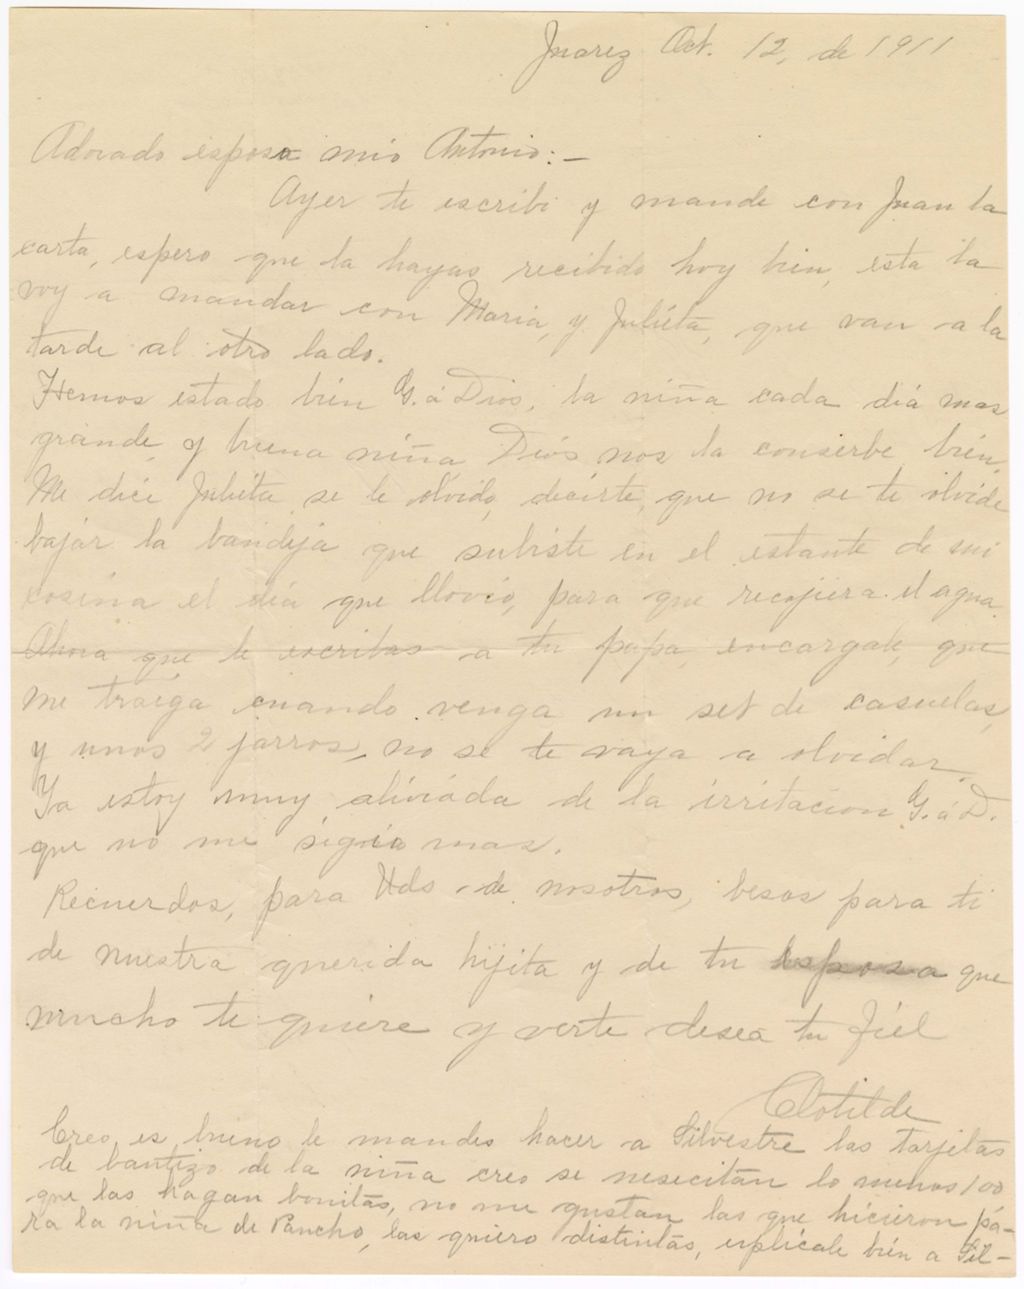 Juarez Oct. 12, de 1911
Adorado esposo mio Antonio:-
Ayer te escribi y mande con Juan la
carta, espero que la hayas recibido hoy bien, esta la
voy a mandar con Maria, y Julieta, que van a la
tarde al otro lado.
Hemos estado bién G. á Dios, la niña cada dia mas
grande, y buena niña Diós nos la conserbe bién,
Me dice Julieta se le olvido, decirte, que no se te olvide
bajar la bandeja que subiste en el estante de mi
cosina el dia que llovió, para que recojiera el agua.
Ahora que le escribas a tu papa, encargale, que
me traiga cuando venga un set de casuelas,
y unos 2 jarros, no se te vaya a olvidar.
Ya estoy muy aliviada de la irritacion G. á D.
que no me sigio mas.
Recuerdos, para Uds de nosotros, besos para ti
de nuestra querida hijita y de tu esposa que
mucho te quiere y verte desea tu fiel
Clotilde
Creo, es bueno le mandes hacer a Silvestre las tarjetas
de bautizo de la niña creo se nesecitan lo menos 100
que las hagan bonitas, no me gustan las que hicieron pá-
ra la niña de Pancho, las quiero distintas, esplicale bién a Sil-